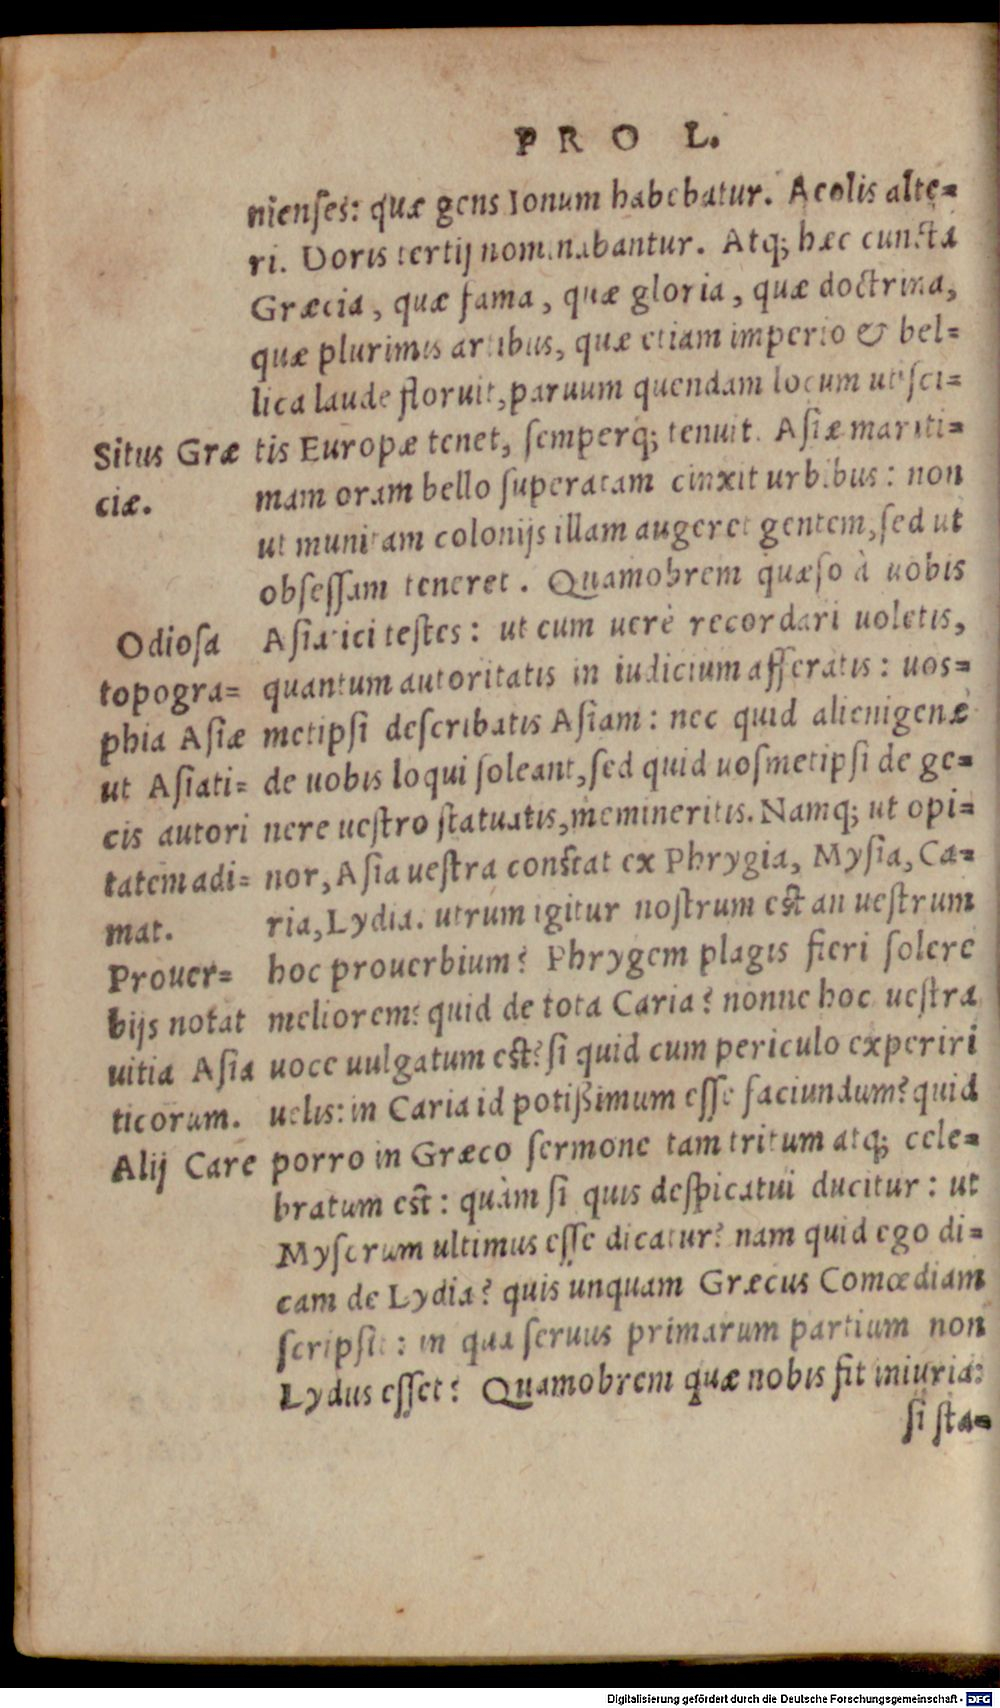 PRO L.
nienses: quæ gens Ionum habebatur. Aeolis alte=
ri. Doris tertij nominabantur. Atq; hæc cuncta
Græcia, quæ fama, quæ gloria, quæ doctrina,
quæ plurimis artibus, quæ etiam imperio & bel=
lica laude floruit, paruum quendam locum ut sci=
Situs Græ
ciæ.
tis Europæ tenet, semperq; tenuit. Asiæ mariti=
mam oram bello superatam cinxit urbibus: non
ut munitam colonijs illam augeret gentem, sed ut
obsessam teneret. Quamobrem quæso à uobis
Odiosa
topogra=
phia Asiæ
ut Asiati=
cis autori
tatem adi=
mat.
Asiatici testes: ut cum uerè recordari uoletis,
quantum autoritatis in iudicium afferatis: uos=
metipsi describatis Asiam: nec quid alienigenæ
de uobis loqui soleant, sed quid uosmetipsi de ge=
nere uestro statuatis, memineritis. Namq; ut opi=
nor, Asia uestra constat ex Phrygia, Mysia, Ca=
ria, Lydia. utrum igitur nostrum est an uestrum
Prouer=
bijs notat
uitia Asia
ticorum.
Alij Care
hoc prouerbium? Phrygem plagis fieri solere
meliorem? quid de tota Caria? nonne hoc uestra
uoce uulgatum est? si quid cum periculo experiri
uelis: in Caria id potißimum esse faciundum? quid
porro in Græco sermone tam tritum atq; cele=
bratum est: quàm si quis despicatui ducitur: ut
Mysorum ultimus esse dicatur? nam quid ego di=
cam de Lydia? quis unquam Græcus Comœdiam
scripsit: in qua seruus primarum partium non
Lydus esset? Quamobrem quæ nobis fit iniuria:
si sta=
Digitalisierung gefördert durch die Deutsche Forschungsgemeinschaft - DFG